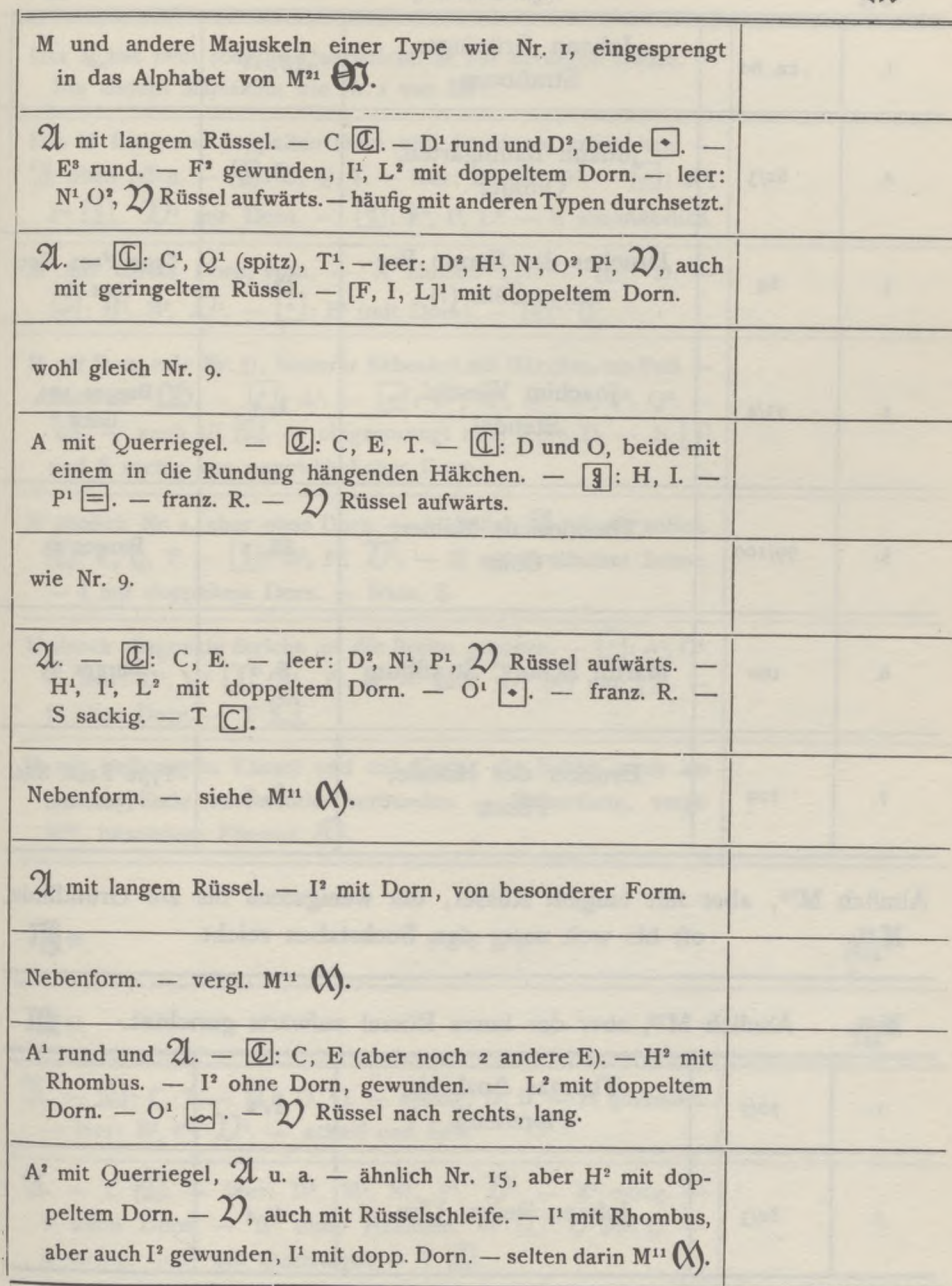 M und andere Majuskeln einer Type wie Nr. 1, eingesprengt
in das Alphabet von M²¹ 𝔐.
𝔄 mit langem Rüssel. — C ℭ. — D¹ rund und D², beide ◆. —
E³ rund. — F² gewunden, I¹, L² mit doppeltem Dorn. — leer:
N¹, O², 𝔙 Rüssel aufwärts. — häufig mit anderen Typen durchsetzt.
𝔄. — ℭ: C¹, Q¹ (spitz), T¹. — leer: D², H¹, N¹, O², P¹, 𝔙, auch
mit geringeltem Rüssel. — [F, I, L]¹ mit doppeltem Dorn.
wohl gleich Nr. 9.
A mit Querriegel. — ℭ: C, E, T. — ℭ: D und O, beide mit
einem in die Rundung hängenden Häkchen. — §: H, I. —
P¹ =. — franz. R. — 𝔙 Rüssel aufwärts.
wie Nr. 9.
𝔄. — ℭ: C, E. — leer: D², N¹, P¹, 𝔙 Rüssel aufwärts. —
H¹, I¹, L² mit doppeltem Dorn. — O¹ ◆. — franz. R. —
S sackig. — T C.
Nebenform. — siehe M¹¹
𝔄 mit langem Rüssel. — I² mit Dorn, von besonderer Form.
Nebenform. — vergl. M¹¹
A¹ rund und 𝔄. — ℭ: C, E (aber noch 2 andere E). — H² mit
Rhombus. — I² ohne Dorn, gewunden. — L² mit doppeltem
Dorn. — O¹ . — 𝔙 Rüssel nach rechts, lang.
A² mit Querriegel, 𝔄 u. a. — ähnlich Nr. 15, aber H² mit dop-
peltem Dorn. — 𝔙, auch mit Rüsselschleife. — I¹ mit Rhombus,
aber auch I² gewunden, I¹ mit dopp. Dorn. — selten darin M¹¹